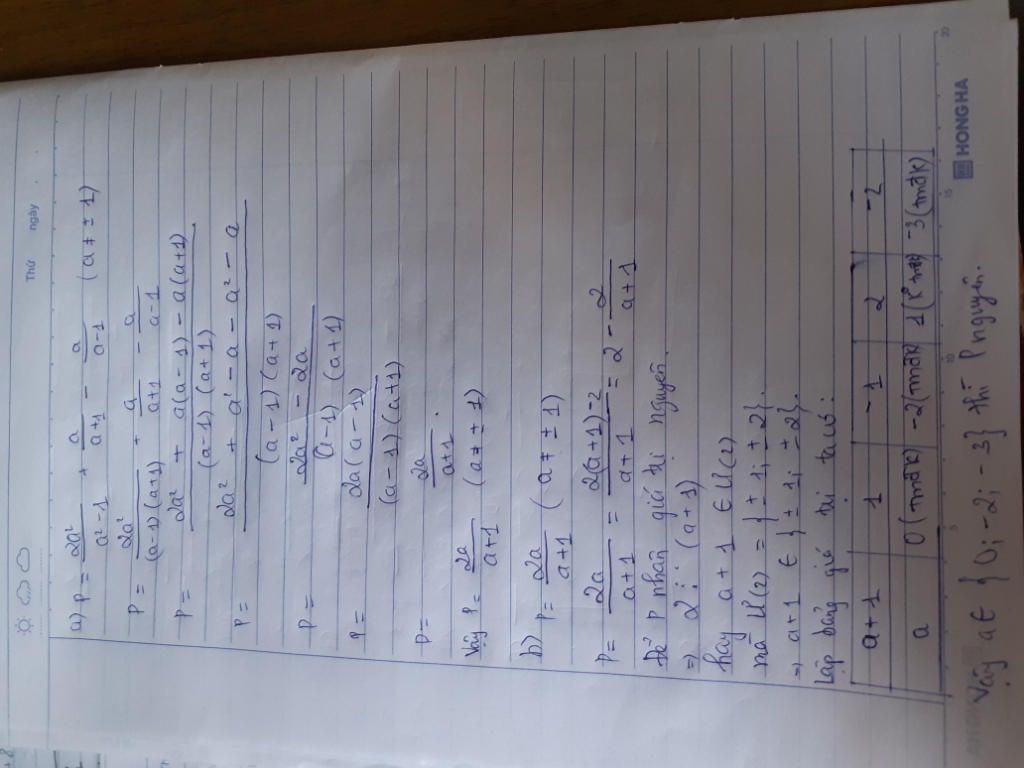 Thứ ngày
a) P = 2a²/(a² - 1) + a/(a+1) - a/(a-1) (a ≠ ± 1)
P = 2a²/((a-1)(a+1)) + a/(a+1) - a/(a-1)
P = (2a² + a(a-1) - a(a+1))/((a-1)(a+1))
P = (2a² + a² - a - a² - a)/((a-1)(a+1))
P = (2a² - 2a)/((a-1)(a+1))
P = 2a(a-1)/((a-1)(a+1))
P = 2a/(a+1).
Vậy P = 2a/(a+1) (a ≠ ± 1)
b) P = 2a/(a+1) (a ≠ ± 1)
P = 2a/(a+1) = (2(a+1)-2)/(a+1) = 2 - 2/(a+1)
Để P nhận giá trị nguyên.
=> 2 ⋮ (a+1)
hay a+1 ∈ Ư(2)
mà Ư(2) = {±1; ±2}.
=> a+1 ∈ {±1; ±2}.
Lập bảng giá trị ta có:
a+1 1 -1 2 -2
a 0 (tmđk) -2 (tmđk) 1 -3 (tmđk)
Vậy a ∈ {0; -2; -3} thì P nguyên.
HONG HA